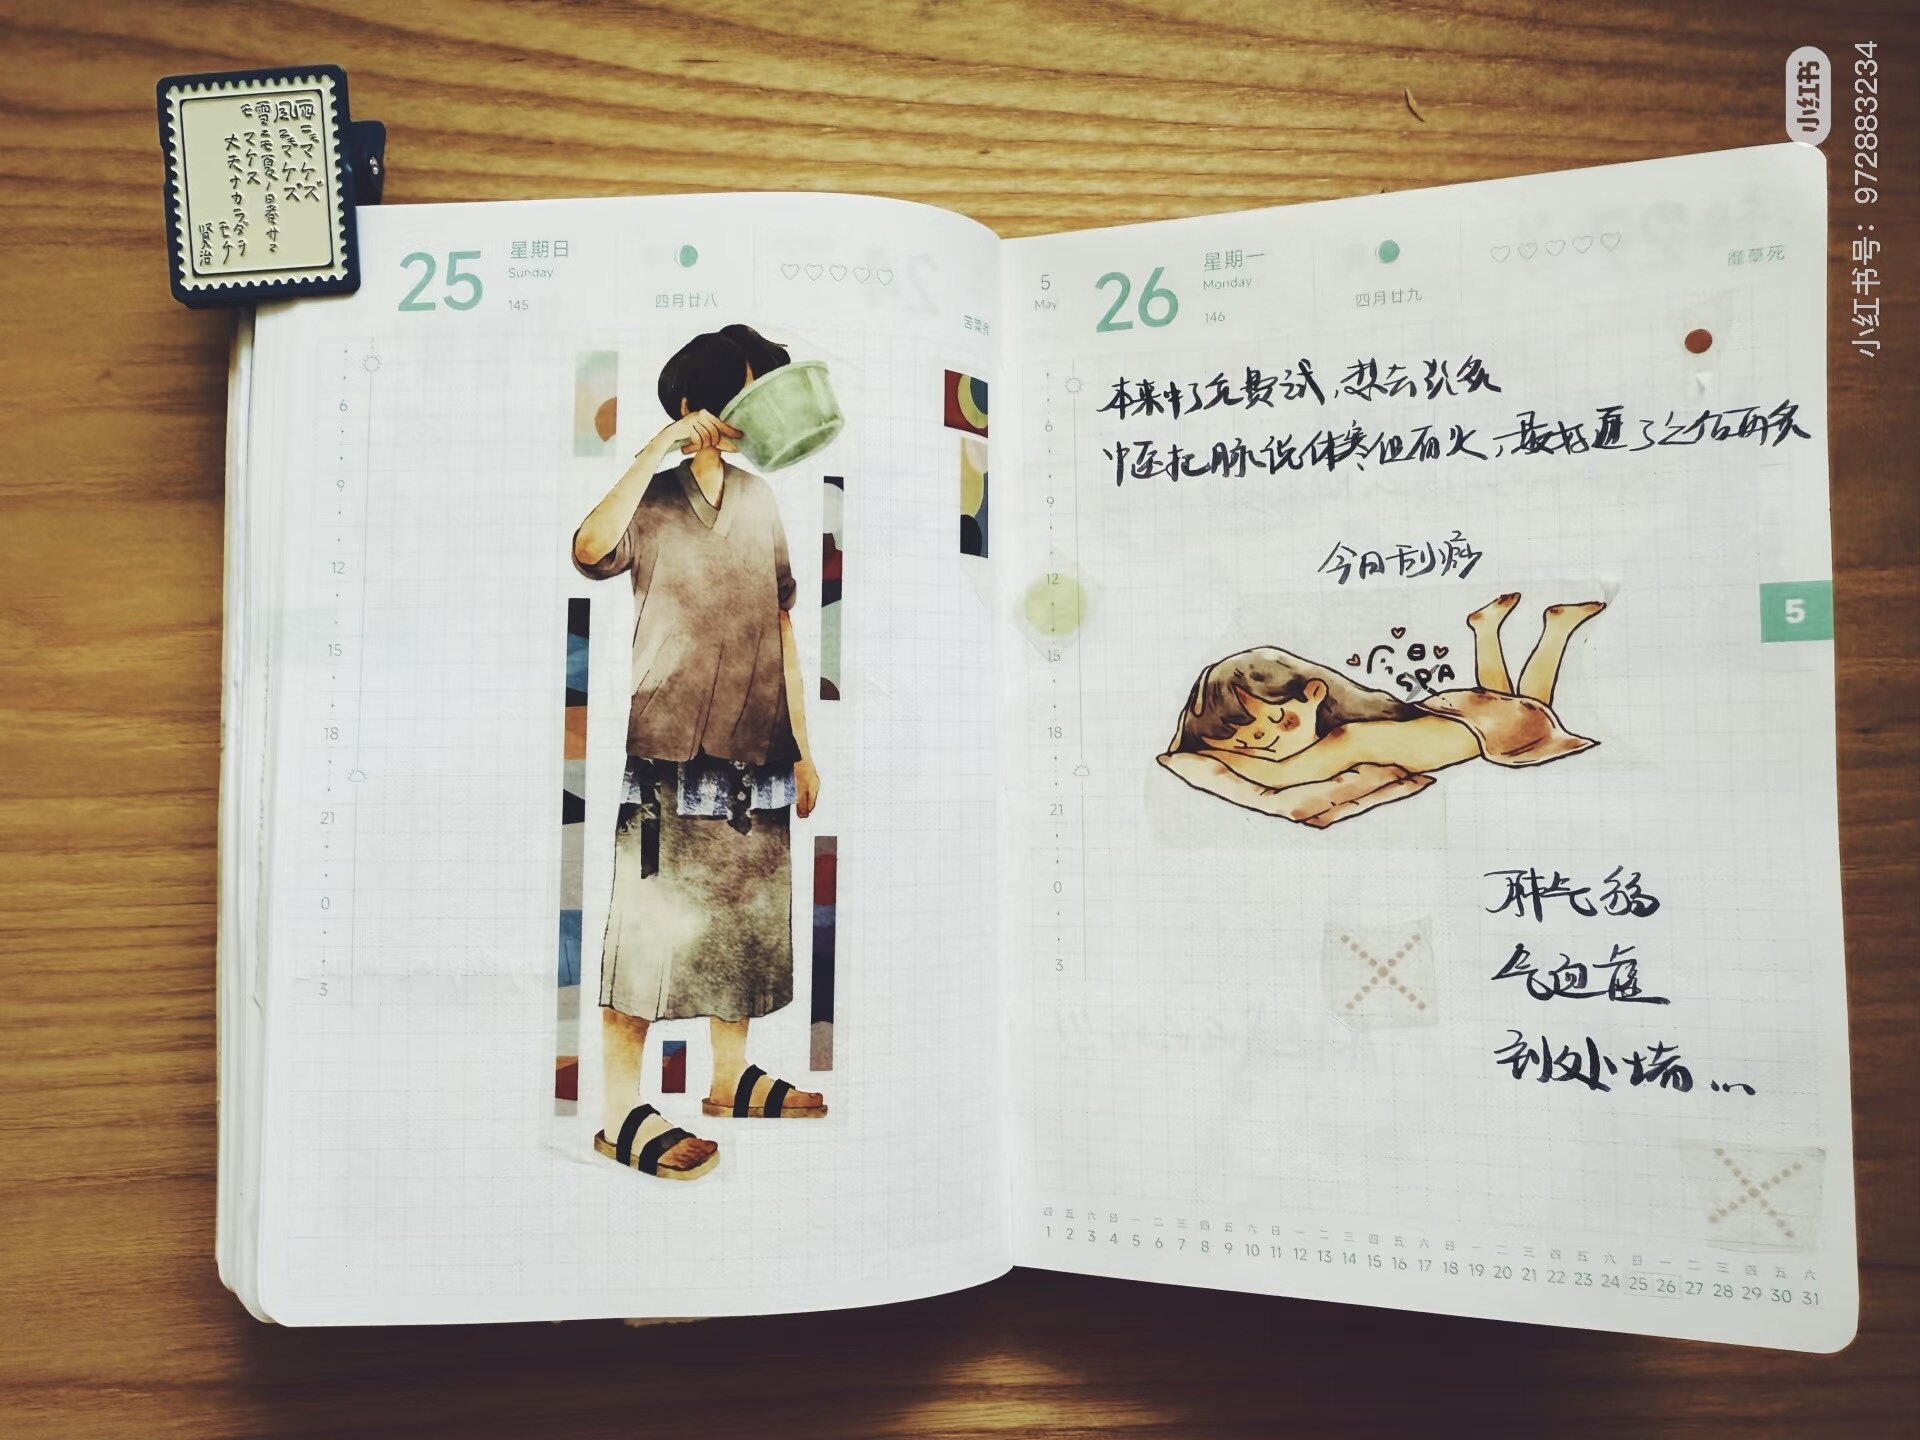 雨ニモマケズ
風ニモマケズ
雪ニモ夏ノ暑サニ
モマケヌ
丈夫ナカラダヲ
モチ
賢治
25
星期日
Sunday
145
四月廿八
♡♡♡♡♡
苦菜秀
6
9
12
15
18
21
0
3
5
May
26
星期一
Monday
146
四月廿九
♡♡♡♡♡
靡草死
本来中了免费试,想去艾灸
中医把脉说体寒但有火,最好通了之后再灸
今日刮痧
6
9
12
15
18
21
0
3
心日
SPA
5
肺气弱
气血虚
到处堵...
四 五 六 日 一 二 三 四 五 六 日 一 二 三 四 五 六 日 一 二 三 四 五 六 日 一 二 三 四 五 六
1 2 3 4 5 6 7 8 9 10 11 12 13 14 15 16 17 18 19 20 21 22 23 24 25 26 27 28 29 30 31
小红书
小红书号: 972883234